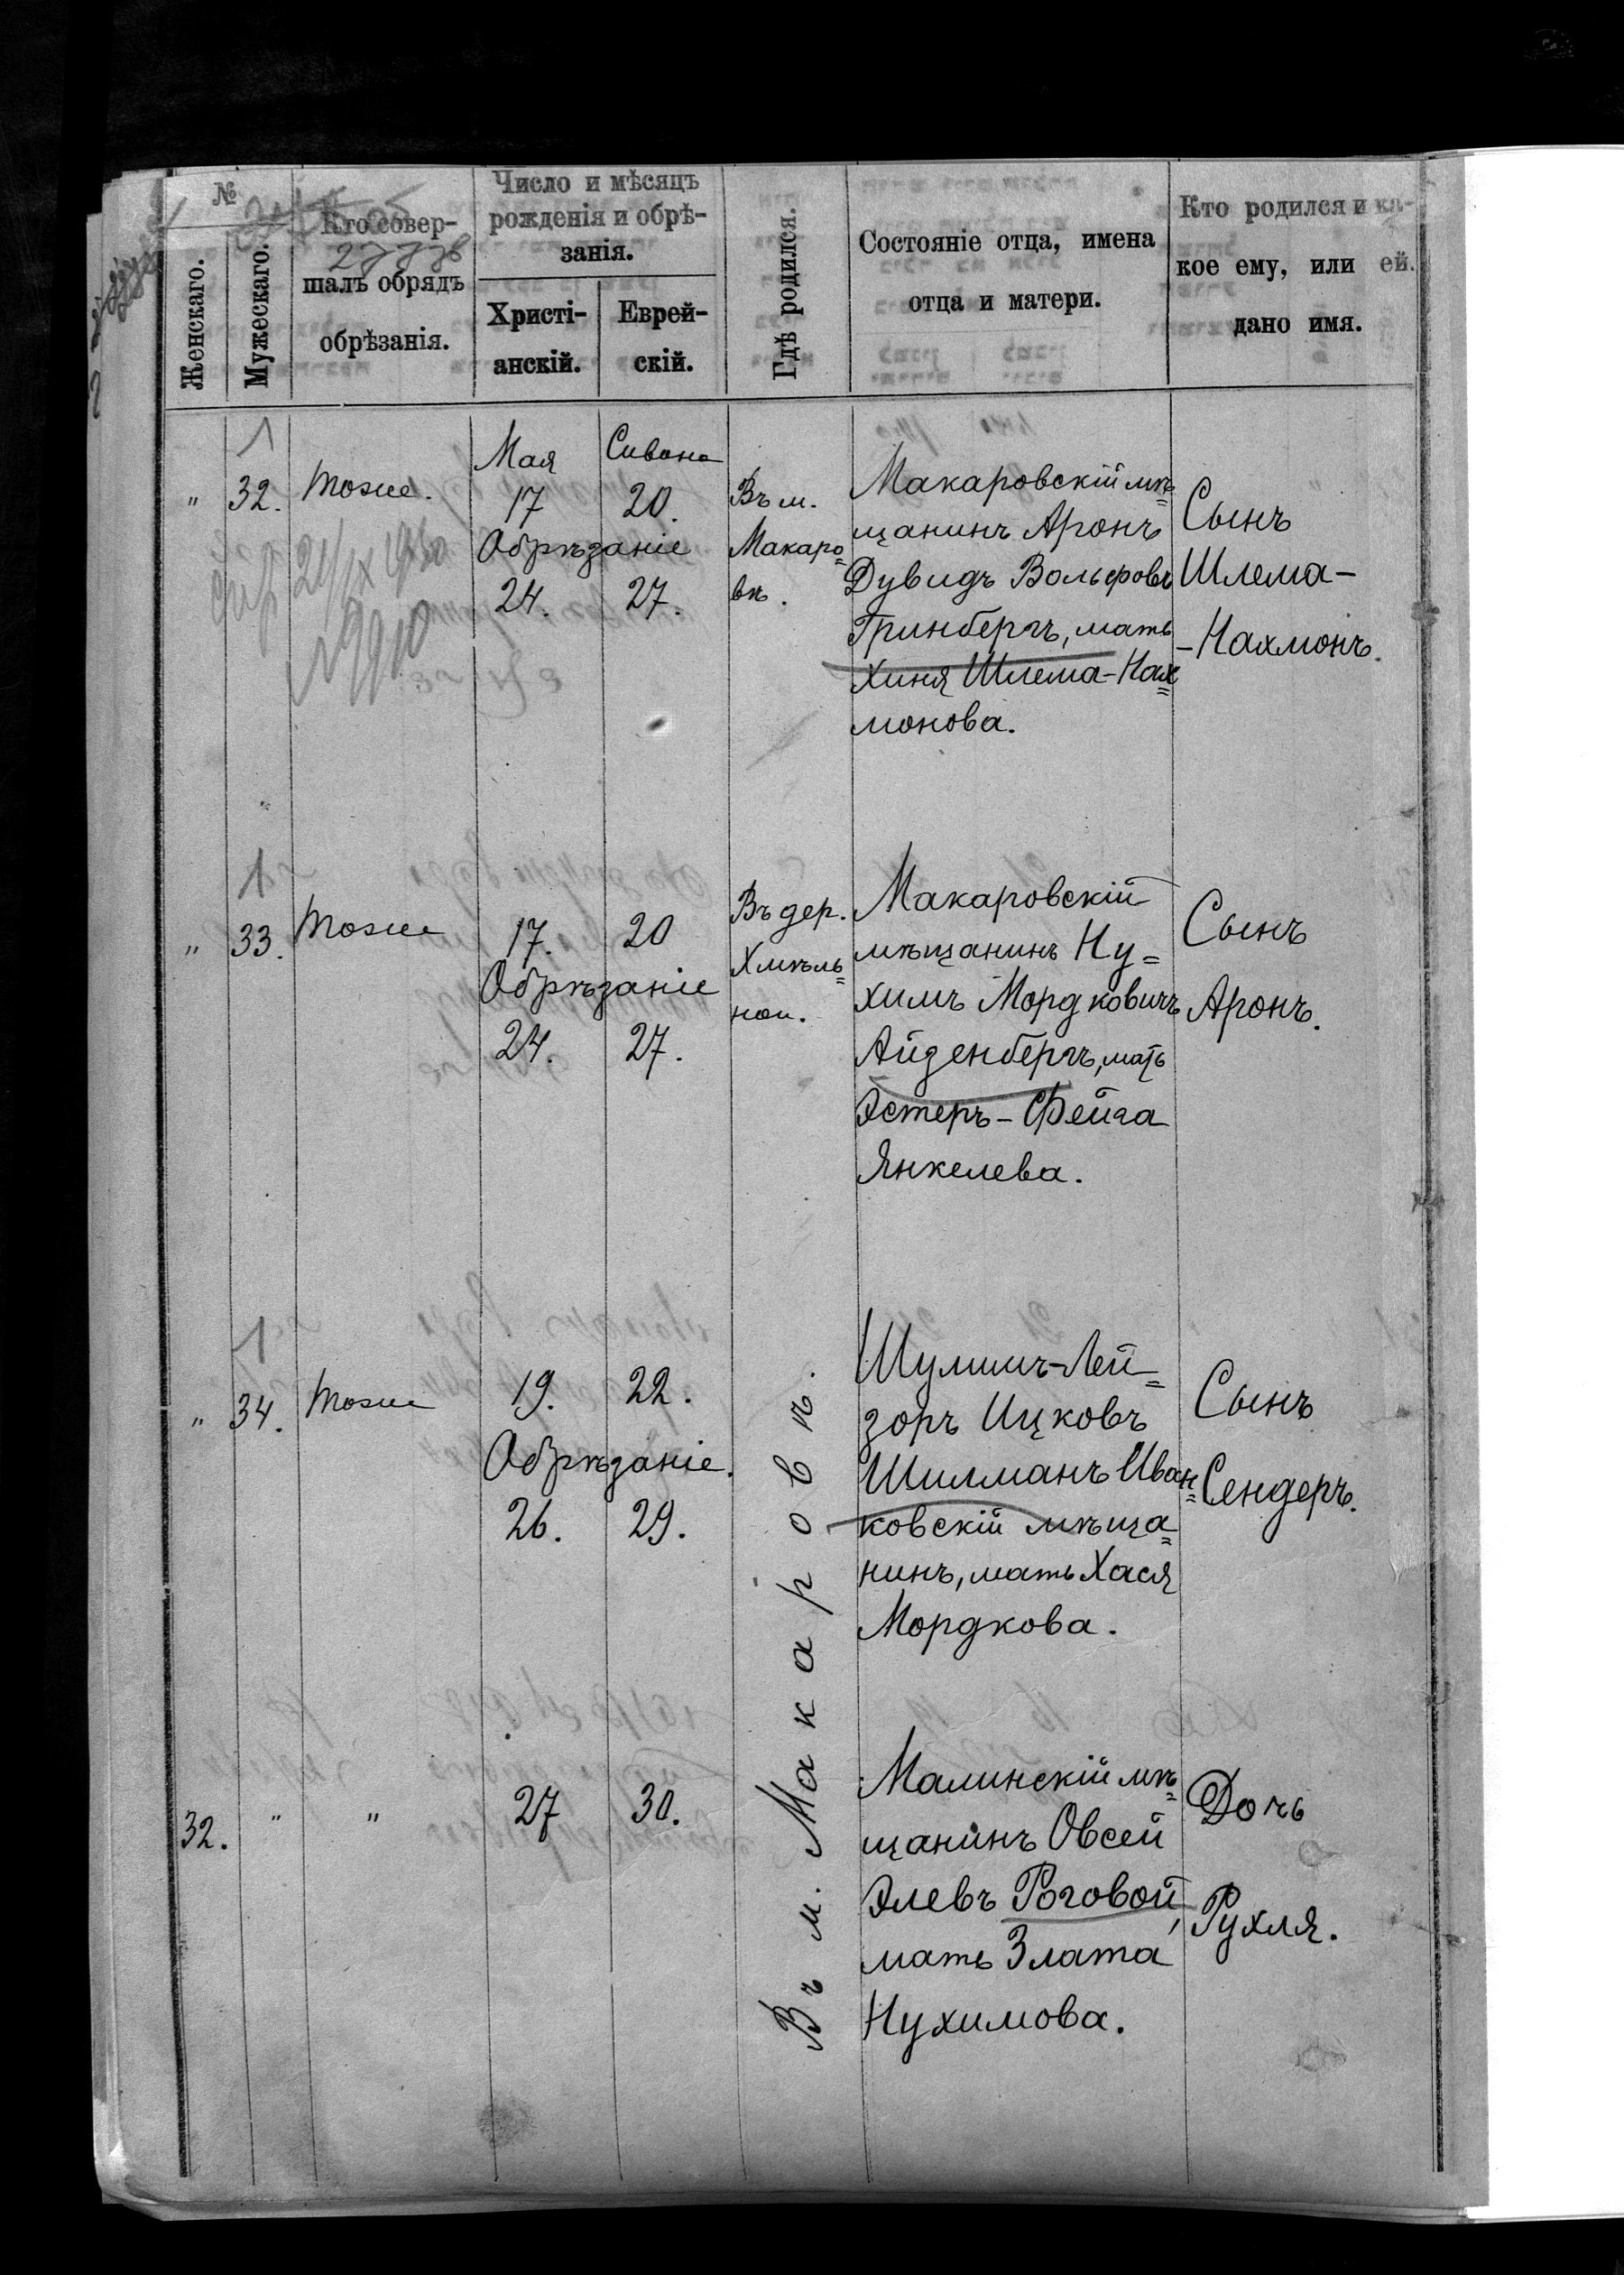 №
Женскаго.
Мужескаго.
Кто совер-
шалъ обрядъ
обрѣзанія.
Число и мѣсяцъ
рожденія и обрѣ-
занія.
Христі-
анскій.
Еврей-
скій.
Гдѣ родился.
Состояніе отца, имена
отца и матери.
Кто родился и ка-
кое ему, или ей.
дано имя.
1
" 32. тоже.
Мая Сивона
17 20.
Обрѣзаніе
24. 27.
Въ м.
Макаро=
вѣ.
Макаровскій мѣ=
щанинъ Аронъ
Дувидъ Вольфовъ
Гринбергъ, мать
Хиня Шлема-Нах=
монова.
Сынъ
Шлема-
-Нахмонъ.
21/IX 1930
1
" 33. тоже
17. 20
Обрѣзаніе
24. 27.
Въ дер.
Хмѣль=
ной.
Макаровскій
мѣщанинъ Ну=
химъ Мордковичъ
Айзенбергъ, мать
Эстеръ-Фейга
Янкелева.
Сынъ
Аронъ.
1
" 34. тоже
19. 22.
Обрѣзаніе.
26. 29.
Въ м. Макаровѣ.
Шулимъ-Лей=
зоръ Ицковъ
Шилманъ Иван=
ковскій мѣща=
нинъ, мать Хася
Мордкова.
Сынъ
Сендеръ.
32. " "
27 30.
Малинскій мѣ=
щанинъ Овсей
Элевъ Роговой,
мать Злата
Нухимова.
Дочь
Рухля.